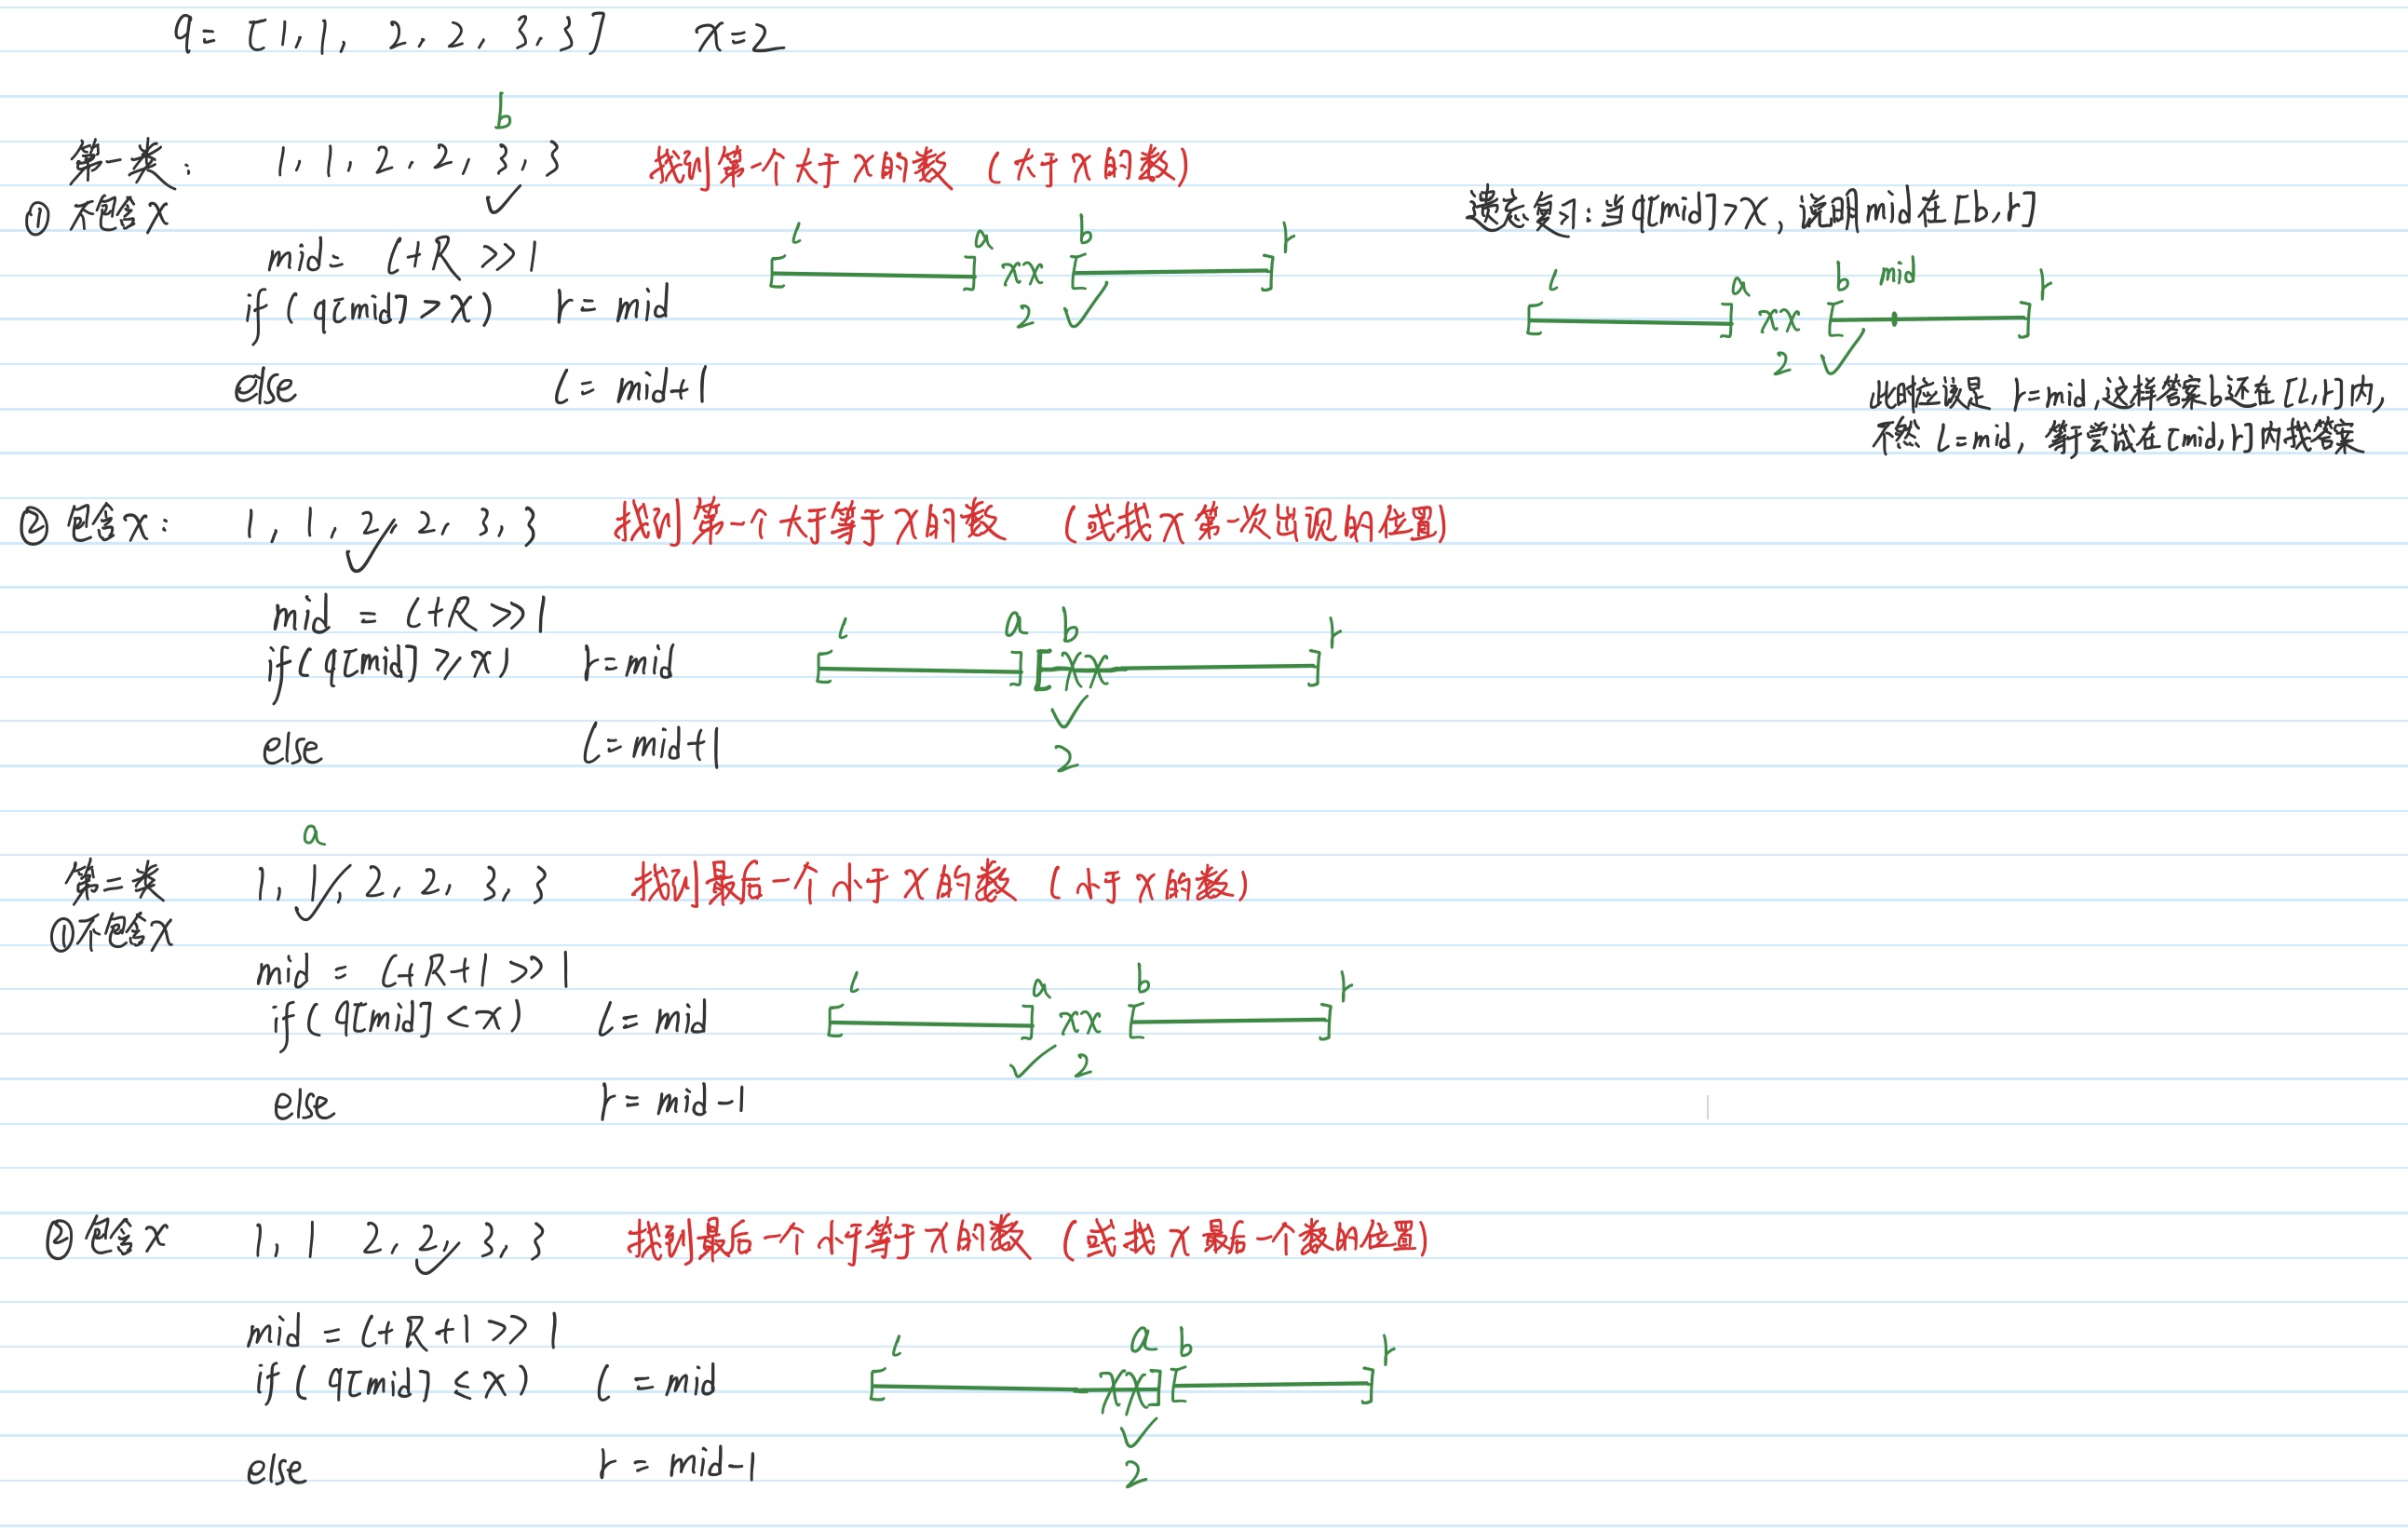 q = [1, 1, 2, 2, 3, 3] x=2
b
第一类: 1, 1, 2, 2, 3, 3 找到第一个大于x的数 (大于x的数)
① 不包含x
遗忘复习: 当q[mid]>x, 说明mid在[b,r]
mid = l+R >> 1
l a b r
xx
2
if (q[mid] > x) r = mid
else l = mid+1
l a b mid r
xx
2
此时应该是 r=mid, 这样答案b还在[l,r]内,
不然 l=mid, 等于尝试在[mid,r]内找答案
② 包含x: 1, 1, 2, 2, 3, 3 找到第一个大于等于x的数 (或找x第一次出现的位置)
mid = l+R >> 1
if (q[mid] ≥ x) r=mid
else l=mid+1
l a b r
xx
2
a
第二类 1, 1, 2, 2, 3, 3 找到最后一个小于x的数 (小于x的数)
①不包含x
mid = l+R+1 >> 1
if (q[mid] < x) l = mid
else r = mid-1
l a b r
xx
2
② 包含x 1, 1 2, 2, 3, 3 找到最后一个小于等于x的数 (或找x最后一个数的位置)
mid = l+R+1 >> 1
if (q[mid] ≤ x) l = mid
else r = mid-1
l a b r
xx
2